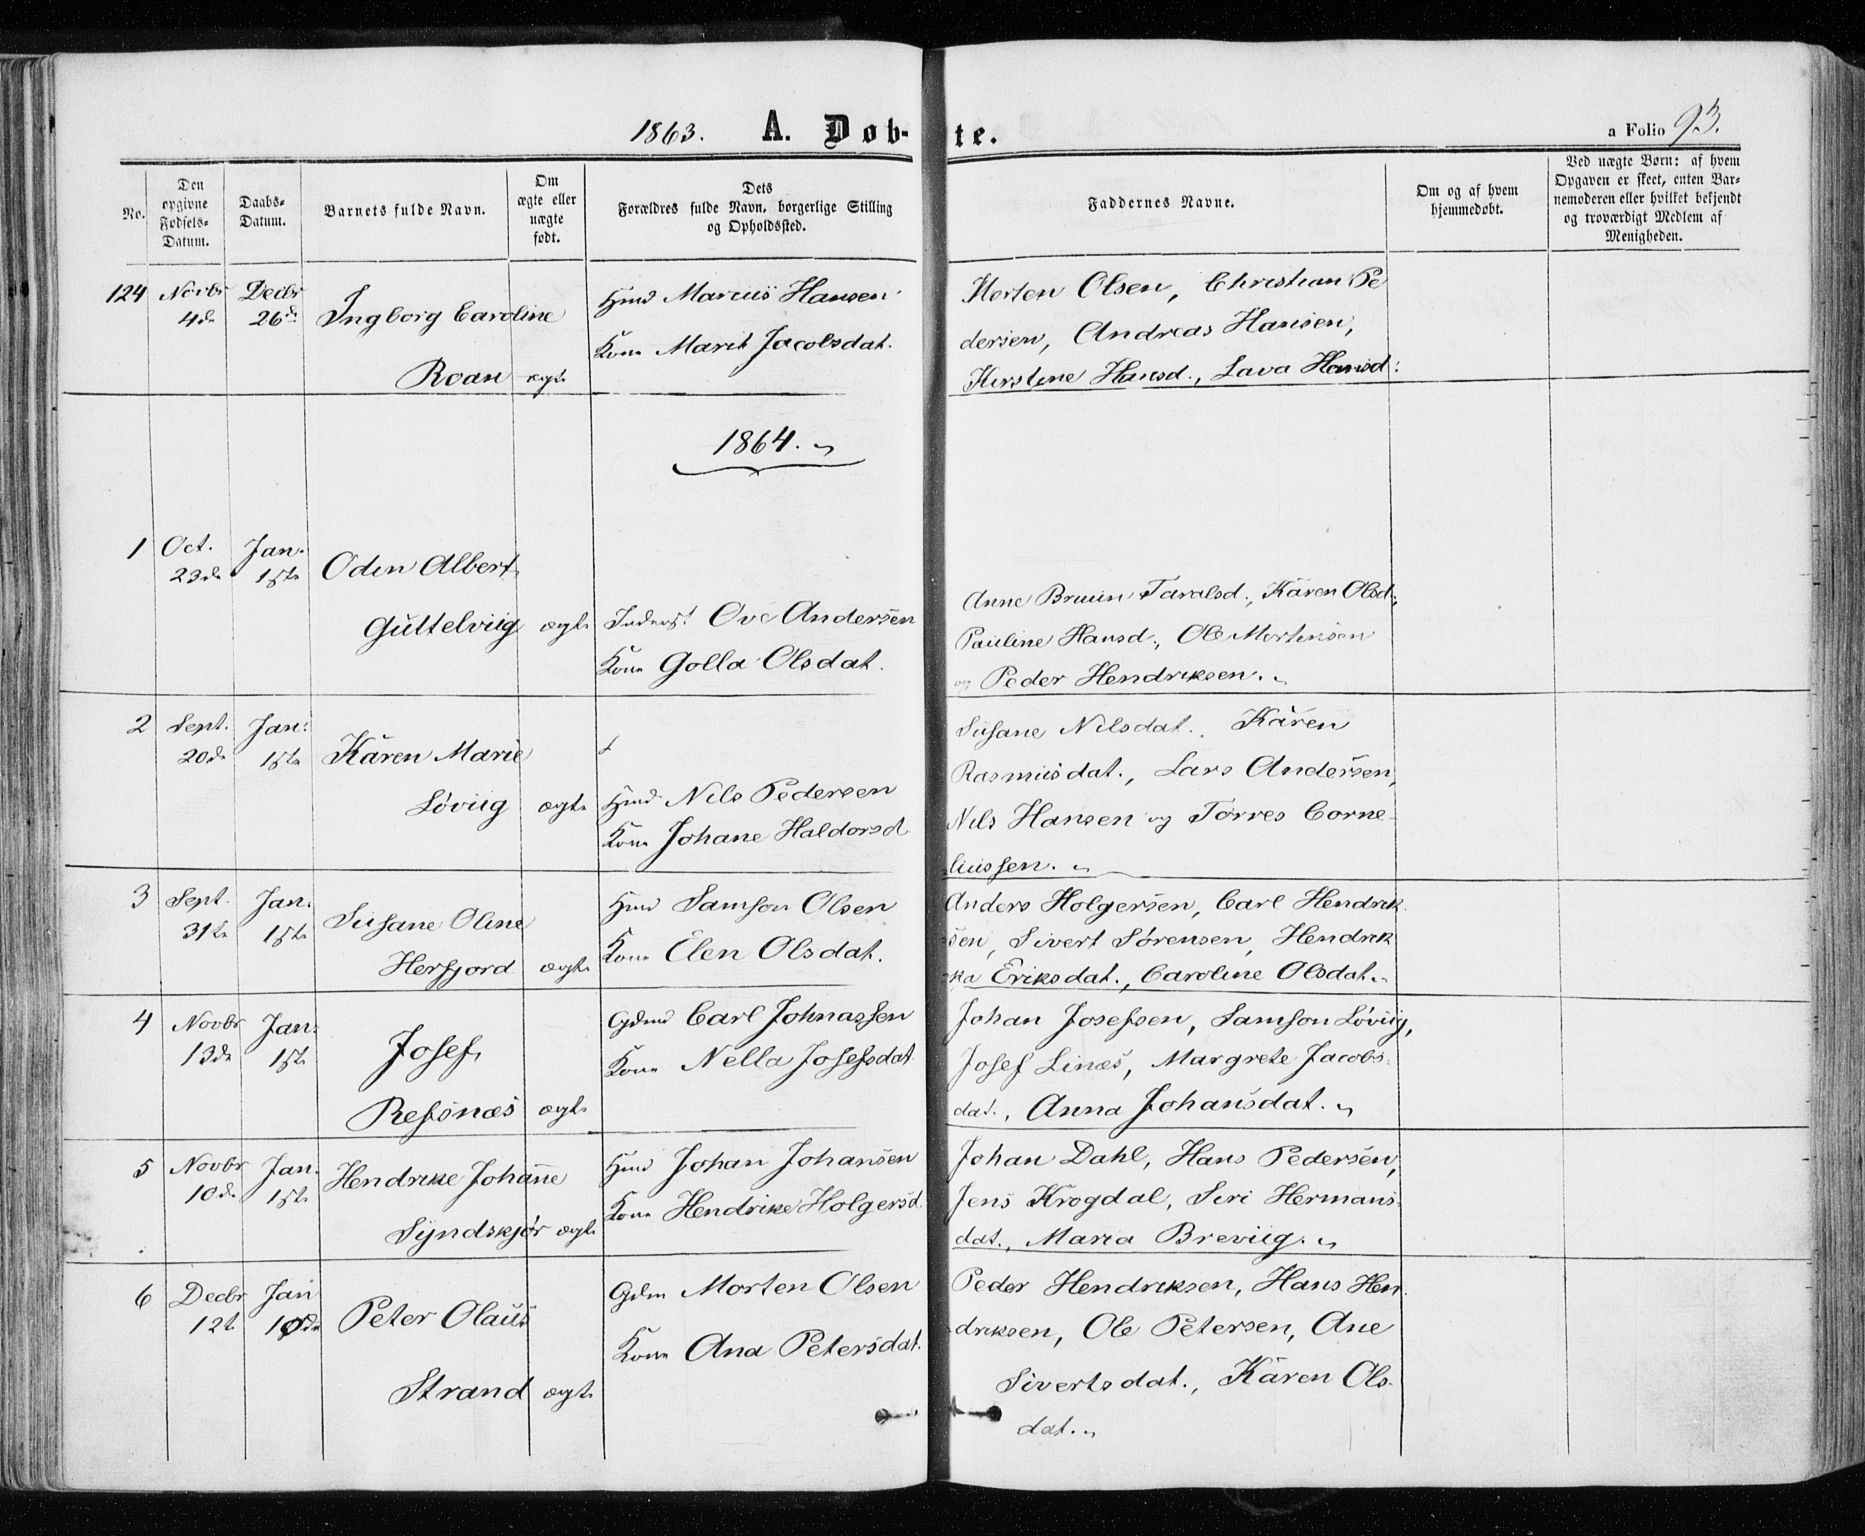 1863. A. Døbte. a Folio 93.
No.
Den opgivne Fødsels-Datum.
Daabs-Datum.
Barnets fulde Navn.
Om ægte eller uægte født.
Dets Forældres fulde Navn, borgerlige Stilling og Opholdssted.
Faddernes Navne.
Om og af hvem hjemmedøbt.
Ved uægte Børn: af hvem Opgaven er skeet, enten Barnemoderen eller hvilket bekjendt og troværdigt Medlem af Menigheden.
124 Novbr 4de Decbr 26de Ingborg Caroline
Roan ægte
Hmd Marcus Hansen
Kone Marit Jacobsdat.
Morten Olsen, Christian Pe
dersen, Andreas Hansen,
Kirstine Hansd., Lava Hansd:
1864.
1 Oct. 23de Jan. 1ste Oden Albert
Guttelviig ægte
Inderst Ove Andersen
Kone Golla Olsdat.
Anne Bruun Taralsd., Karen Olsd.,
Pauline Hansd., Ole Mortensen
og Peder Hendriksen.
2 Sept. 20de Jan: 1ste Karen Marie
Løviig ægte
Hmd Nils Pedersen
Kone Johane Haldorsd
Susane Nilsdat., Karen
Rasmusdat., Lars Andersen,
Nils Hansen og Tørres Corne-
liussen.
3 Sept. 31te Jan. 1ste Susane Oline
Herfjord ægte
Hmd Samson Olsen
Kone Elen Olsdat.
Anders Holgersen, Carl Hendrik
sen, Sivert Sørensen, Hendrik
ka Eriksdat., Caroline Olsdat.
4 Novbr 13de Jan: 1ste Josef
Refsnæs ægte
Gdmd Carl Johnassen
Kone Nella Josefsdat
Johan Josefsen, Samson Løviig,
Josef Linæs, Margrete Jacobs-
dat., Anna Johansdat.
5 Novbr 10de Jan. 1ste Hendrike Johanne
Syndskjør ægte
Hmd Johan Johansen
Kone Hendrike Holgersd.
Johan Dahl, Hans Pedersen,
Jens Krogdal, Siri Hermans-
dat., Maria Breviig.
6 Decbr 12te Jan 10de Peter Olaus
Strand ægte
Gdm Morten Olsen
Kone Ana Petersdat.
Peder Hendriksen, Hans Hen
driksen, Ole Petersen, Ane
Sivertsdat., Karen Ols-
dat.